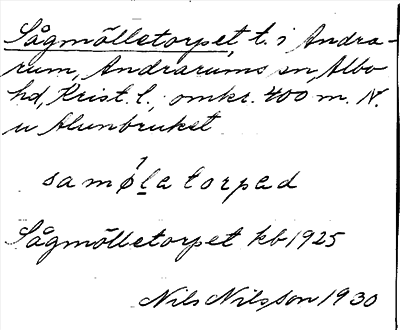 Sågmölletorpet, t. i Andra-
rum, Andrarums sn, Albo
hd, Krist. l., omkr. 400 m. N.
u Alunbruket
samø̀l̲atorpad
Sågmölletorpet kb 1925
Nils Nilsson 1930